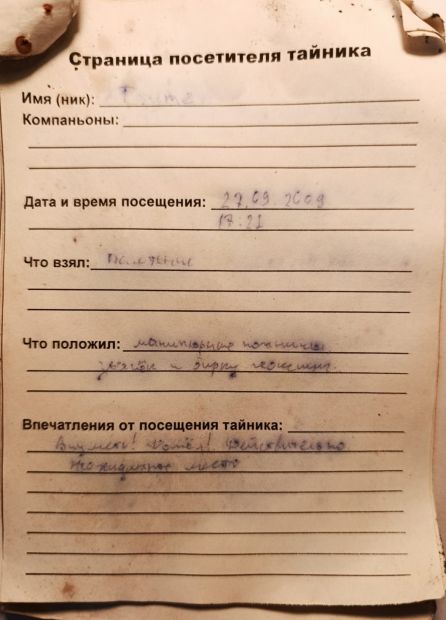 Страница посетителя тайника
Имя (ник):
Компаньоны:
Дата и время посещения: 27.09.2009
17:21
Что взял:
Что положил: маникюрные ножницы
Впечатления от посещения тайника:
Действительно
неожиданное место